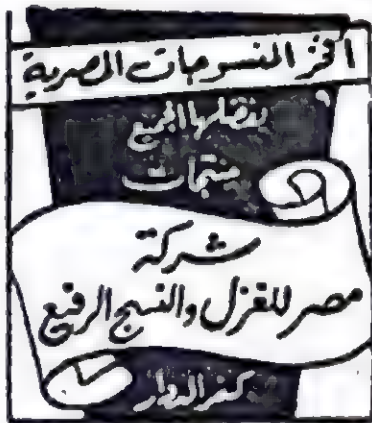 افخر المنسوجات المصرية
يفضلها الجميع
منتجات
شركة
مصر للغزل والنسج الرفيع
كفر الدوار